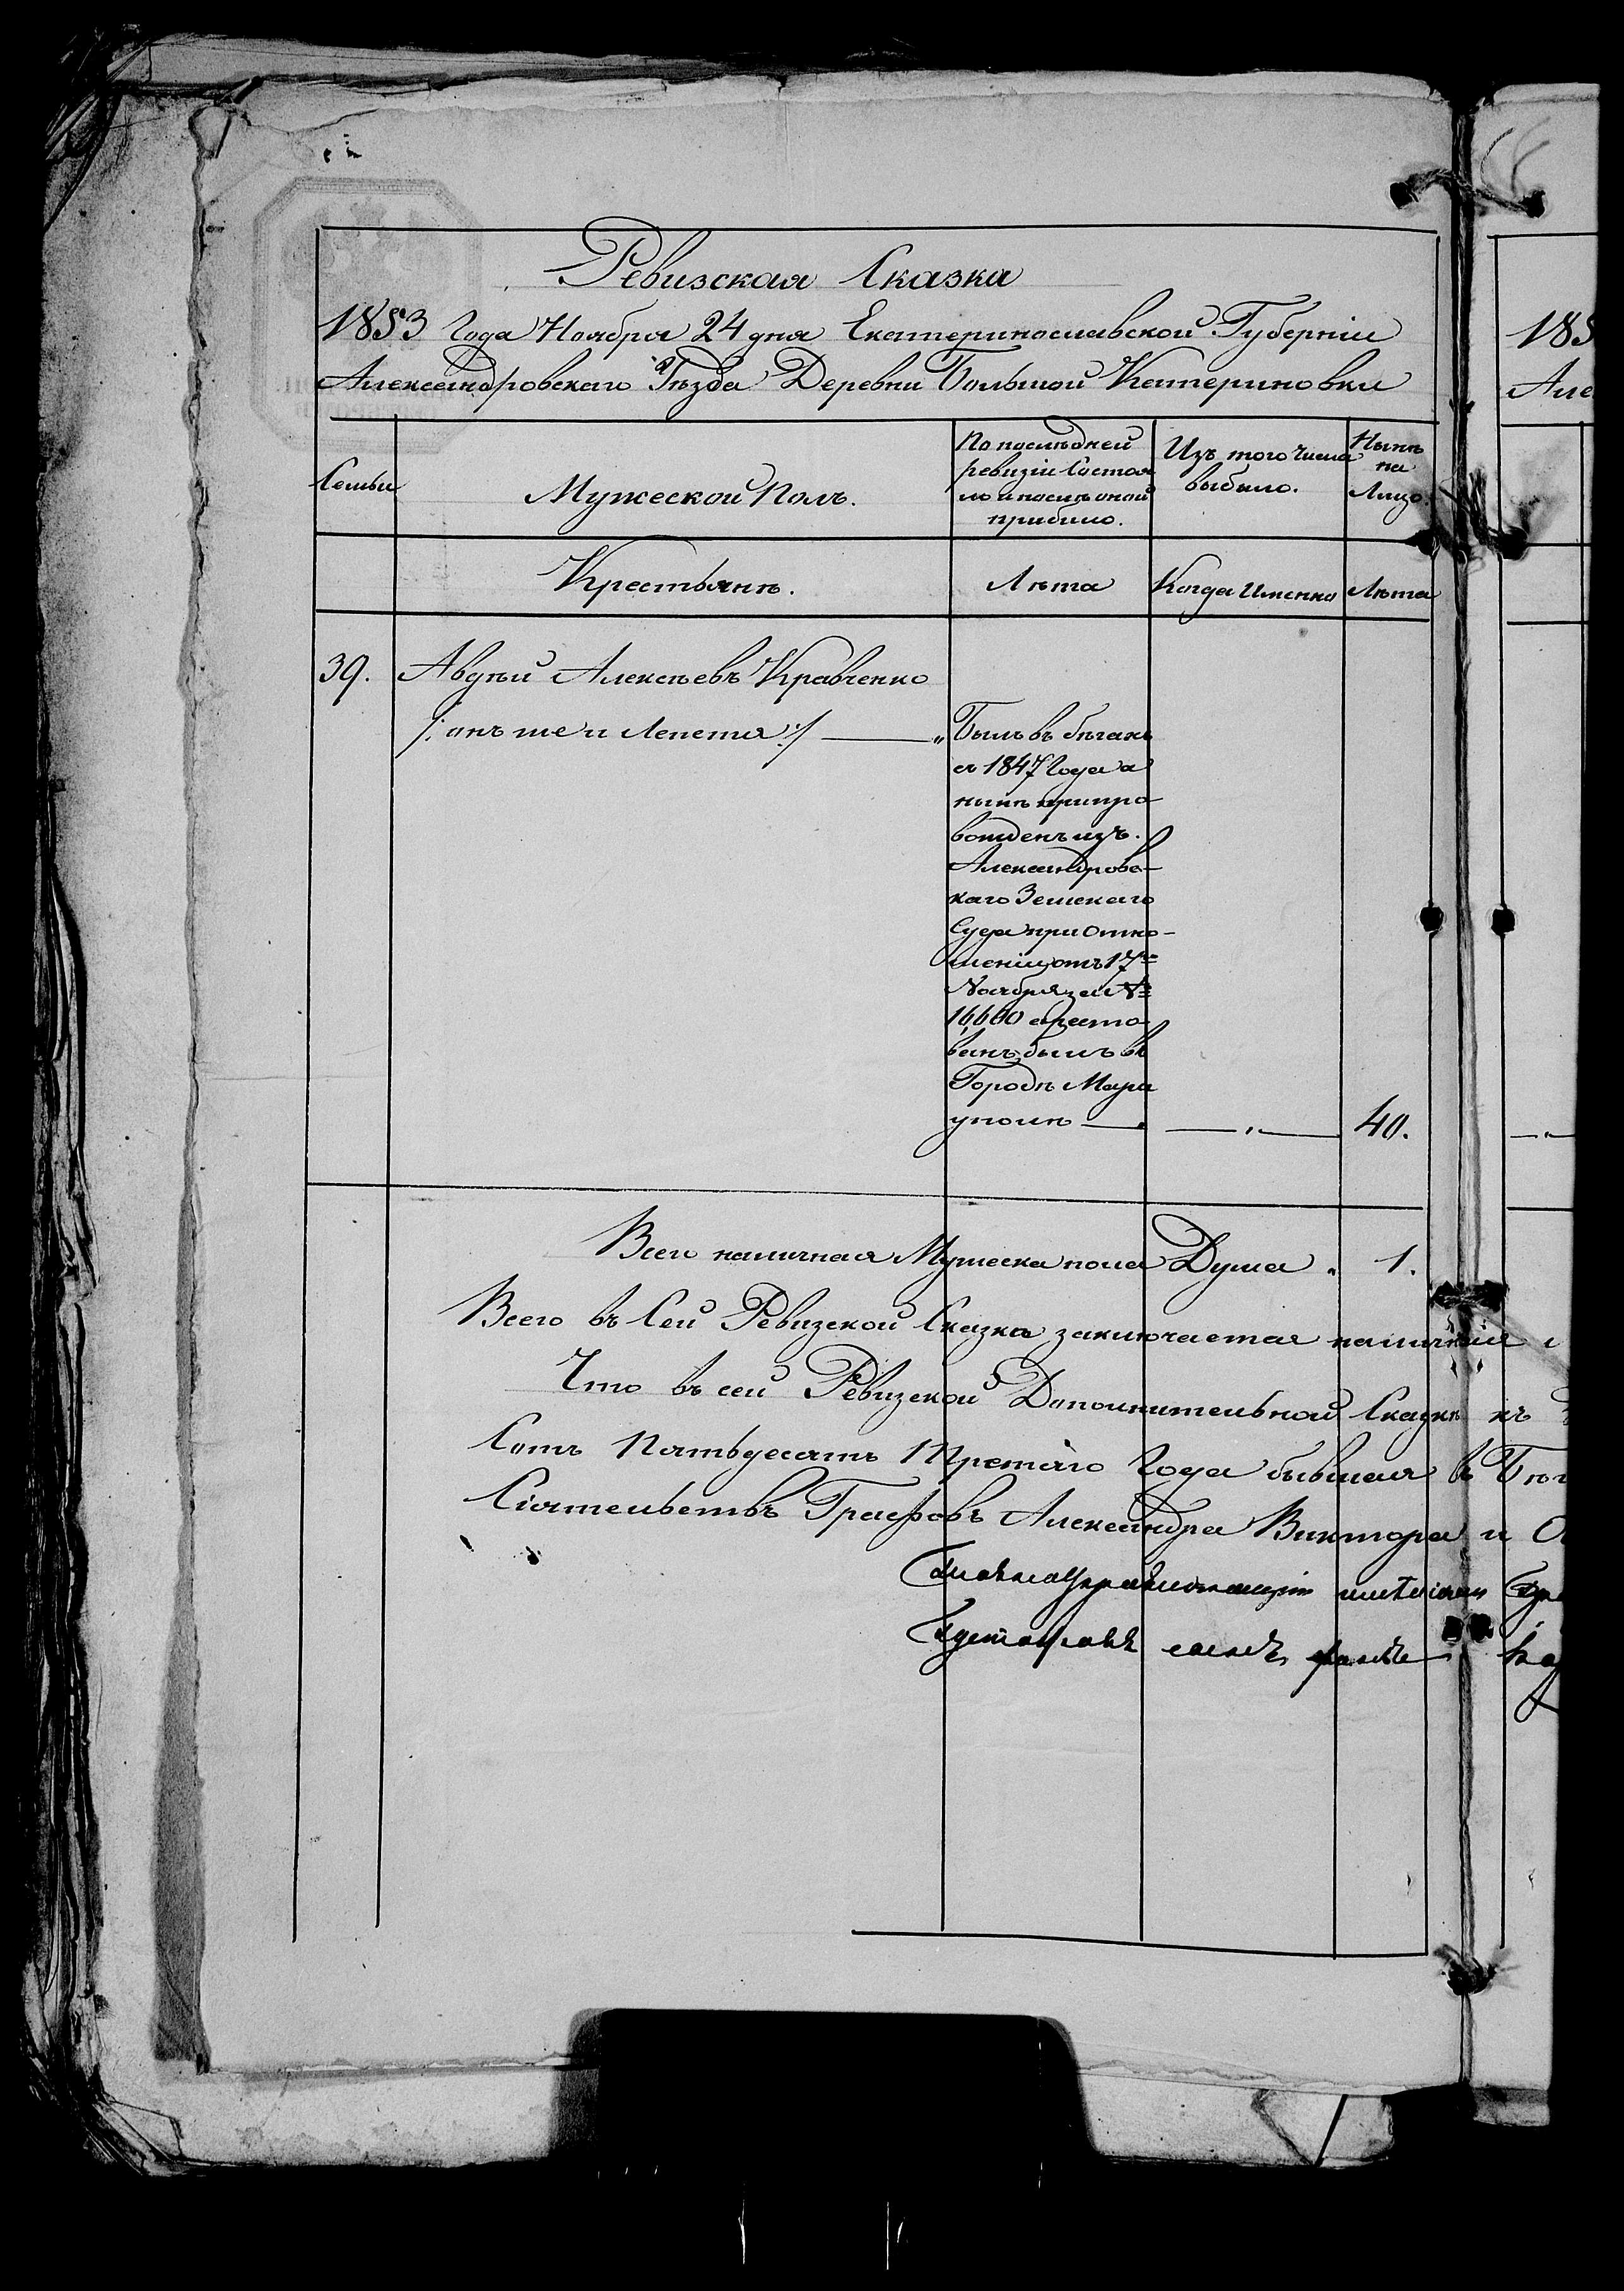 Ревизская Сказка
1853 Года Ноября 24 дня Екатеринославской Губерніи
Александровскаго Уѣзда Деревни Большой Катериновки
Семьи
Мужеской Полъ.
По послѣдней
ревизіи Состоя
ло и послѣ оной
прибыло.
Изъ того Числа
выбыло.
Нынѣ
на
Лицо
Крестьянѣ.
Лѣта
Когда Именно
Лѣта
39.
Авдѣй Алексѣевъ Кравченко
/: онъ же и Лепета :/
Былъ въ бѣгахъ
съ 1847 Года а
нынѣ припро
вожденъ изъ
Александровс-
каго Земскаго
Суда при Отно-
шеніи отъ 17го
Ноября за №
16,660 аресто
ванъ былъ въ
Городѣ Маріу
уполѣ
40.
Всего наличная Мужеска пола Душа 1.
Всего въ Сей Ревизской Сказкѣ заключается наличніе
Что въ сей Ревизской Дополнительной Сказкѣ къ
Сотъ Пятьдесятъ Третяго Года бывшая въ
Сіятельствъ Графовъ Александра Виктора и
Главноуправляющій имѣніями
Густафовъ сынъ фонъ
185
Але